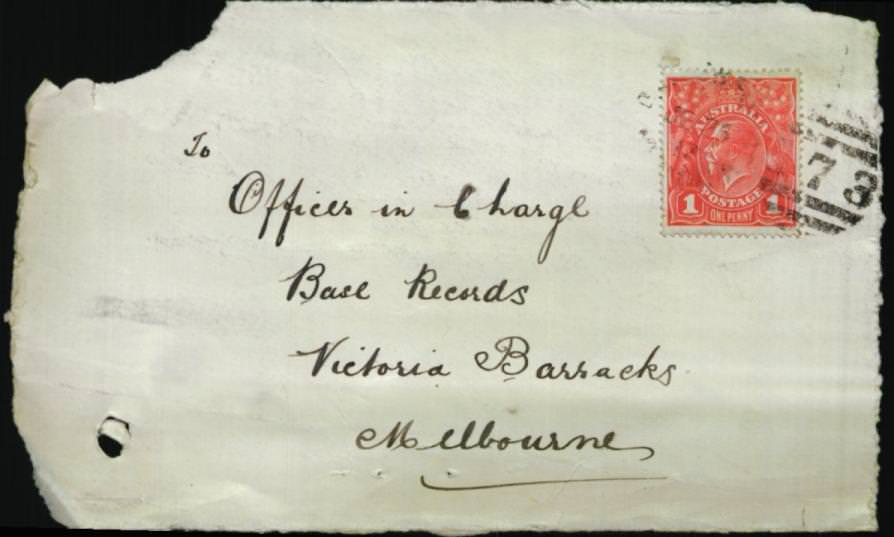 To
Officer in Charge
Base Records
Victoria Barracks
Melbourne
AUSTRALIA
POSTAGE
1 ONE PENNY 1
73